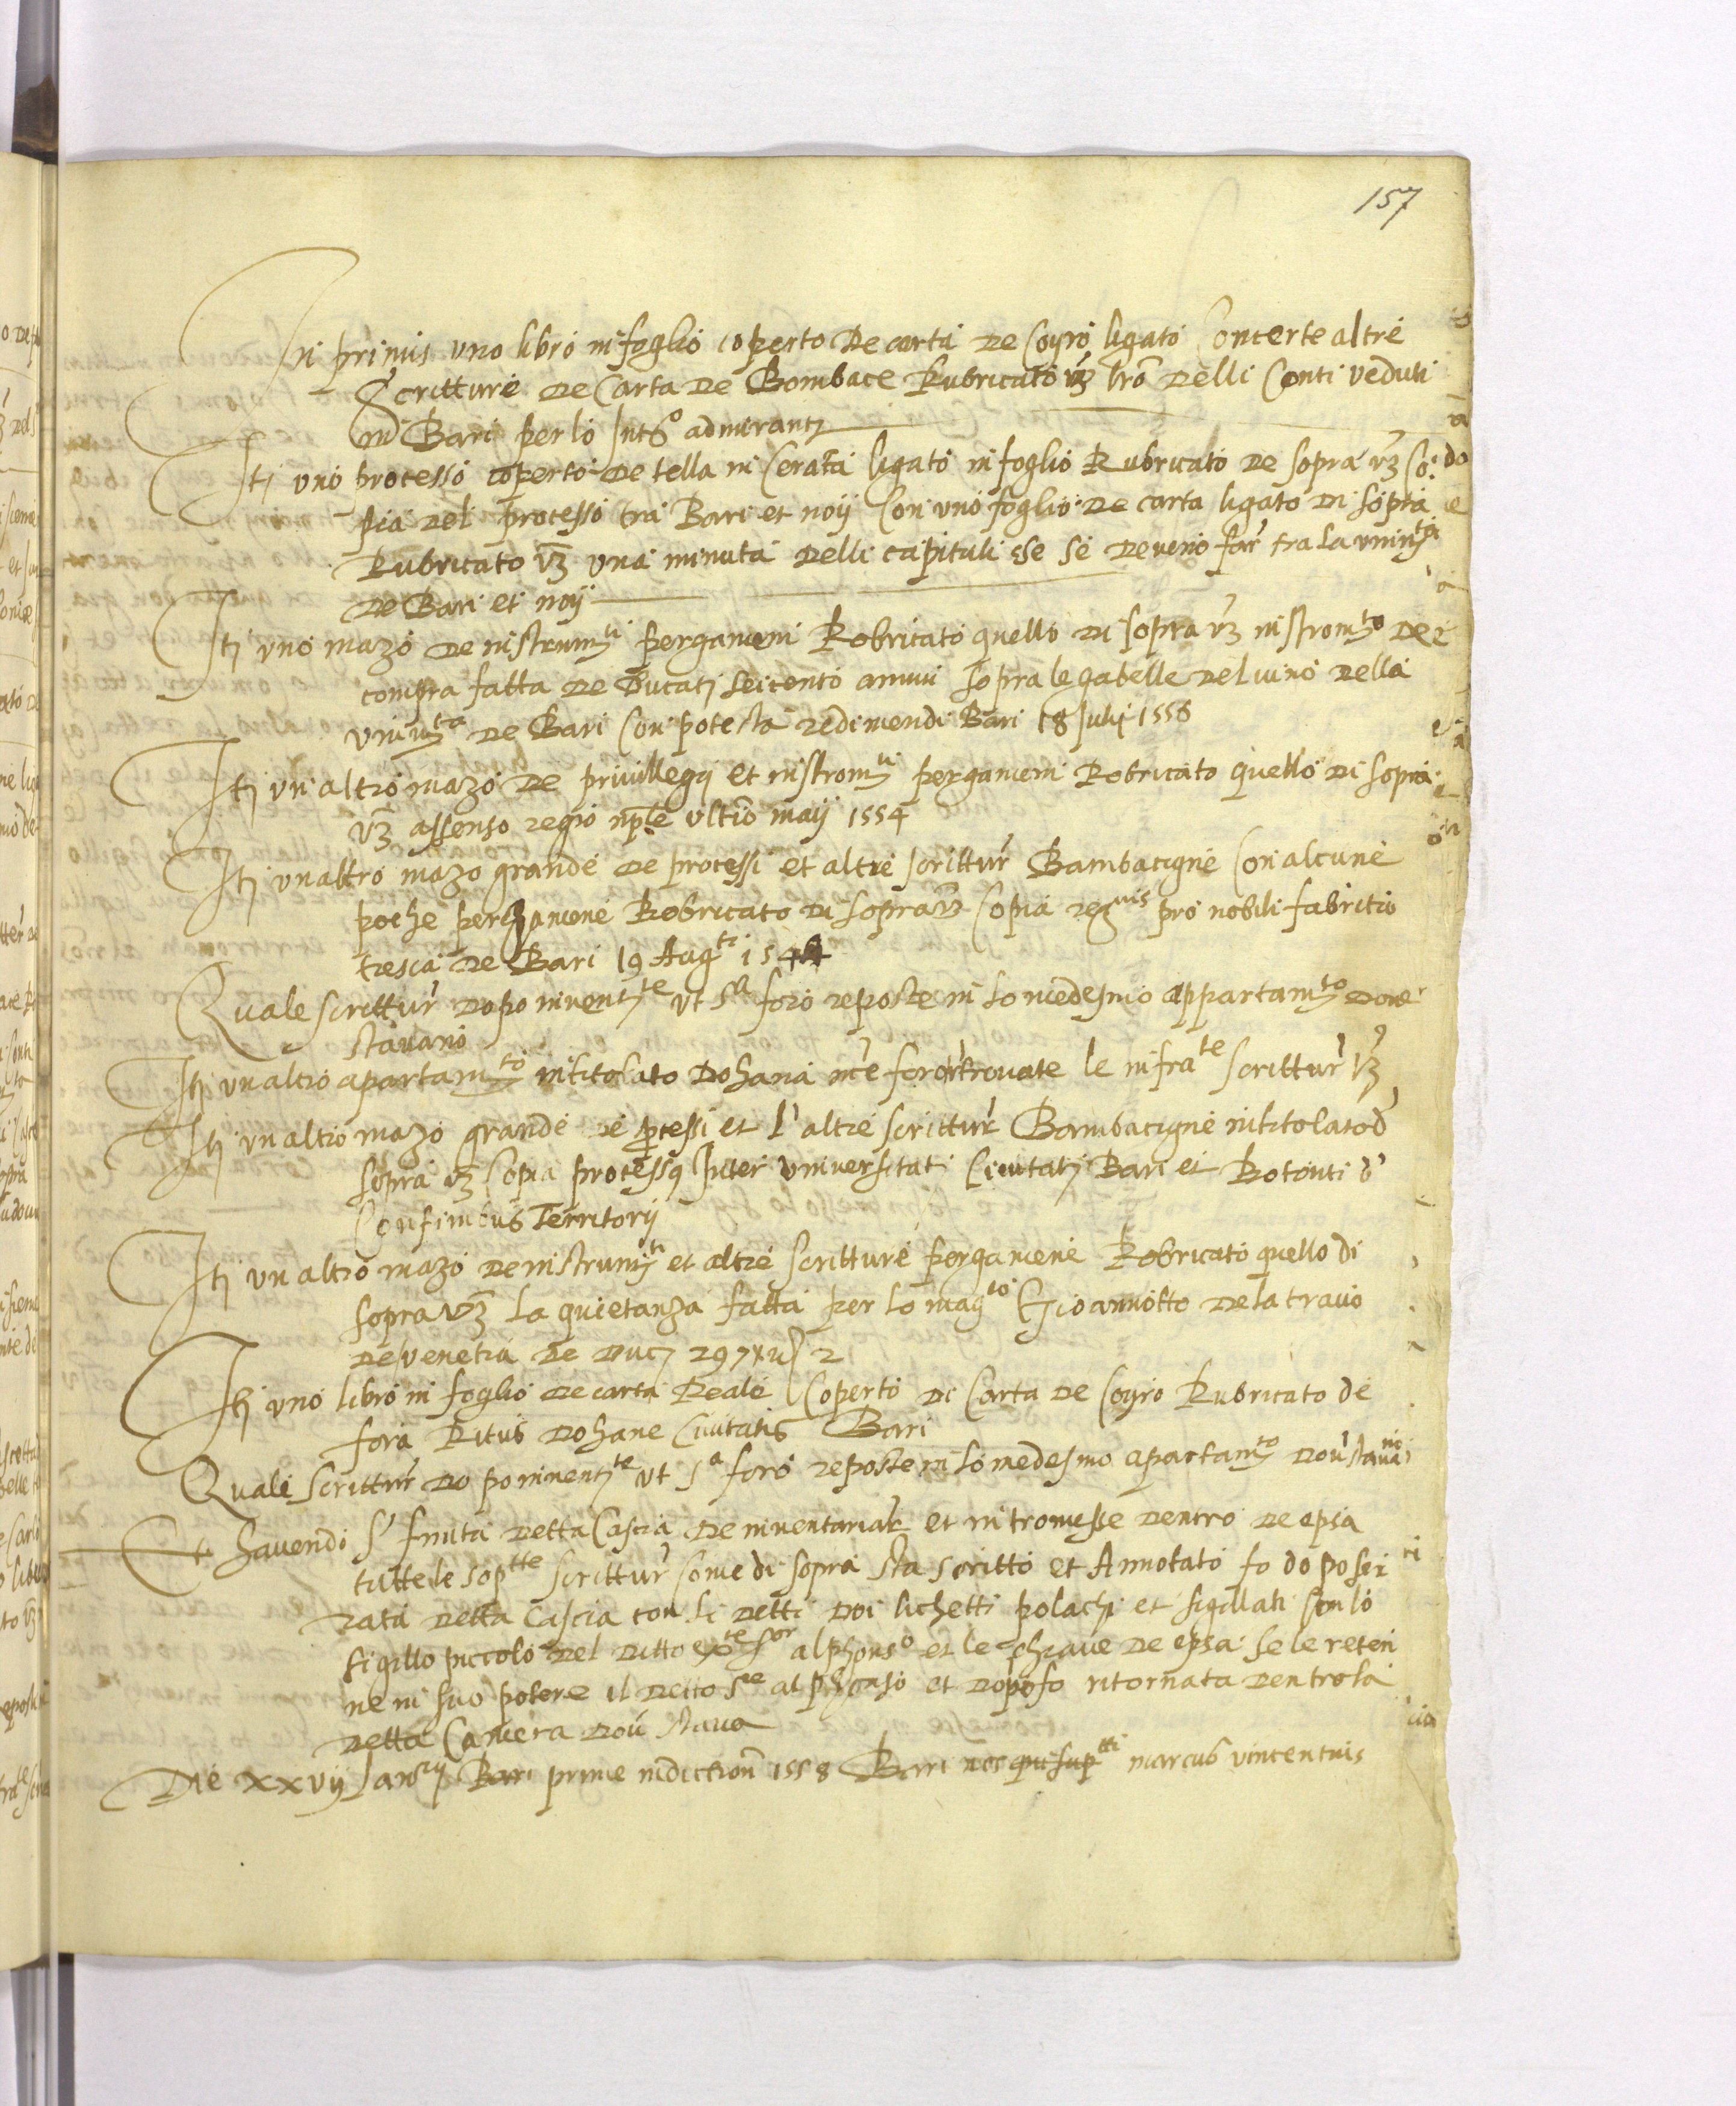 157
In primis uno libro in foglio coperto de carta de coyro ligato con certe altre
scritture de carta de Bombace Rubricato vz libro delli conti veduti
in Bari per lo
Itj uno processo coperto de tella in cerata ligato in foglio Rubricato de sopra vz Co:
pia del processo tra Bari et noij con uno foglio de carta ligato di sopra
Rubricato vz una minuta delli capituli se deveno far tra la univta
de Bari et noij
Itj uno mazo de instrumti pergameni Robricato quello di sopra vz instromto de
compra fatta de Ducatj seicento annui sopra le gabelle del vino della
univta de Bari con potesta redimendi Bari 18 Julij 1556
Itj un altro mazo de privillegij et instromti pergameni Robricato quello di sopra
vz assenso regio ultimo maij 1554
Itj un altro mazo grande de processi et altre scrittur Bambacigne con alcune
poche perchamene Robricato di sopra vz Copia pro nobili fabritio
tresca de Bari 19 Augti
Quale scrittur dopo inventte ut sa foro reposte in lo medesmo appartamto dove
stavano
Itj un altro apartamto intitolato Dohana foro trovate le infrate scrittur vz
Itj un altro mazo grande de pcessi et l altre scrittur Bambacigne intitolato d
sopra vz Copia processus Inter universitatj Civitatj Bari et Botonti d
Confinibus Territorij
Itj un altro mazo de instrumti et altre scritture pergamene Robricato quello di
sopra vz la quietanza fatta per lo magco Gioannotto de la travo
de venetia de ducj 297
Itj uno libro in foglio de carta Reale Coperto di Carta de Coyro Rubricato de
fora Ritus Dohane Civitatis Bari
Quale scrittur dopo inventte ut sa foro reposte in lo medesmo apartamto dov stavano
Et havendo finita detta Cascia de inventariar et intromesse dentro de epsa
tutte le soptte scrittur come di sopra sta scritto et Annotato fo dopo ser
rata detta Cascia con li detti doi lichetti polachi et sigillati con lo
sigillo piccolo del ditto sor alphonso et le chiave de epsa se le reten
ne in suo potere il detto Sre alphonso et dopo fo ritornata dentro la
detta Camera dov stava
Die xxvij Janrij Bari prime indiction 1558 Bari nos qui suptti marcus vincentius